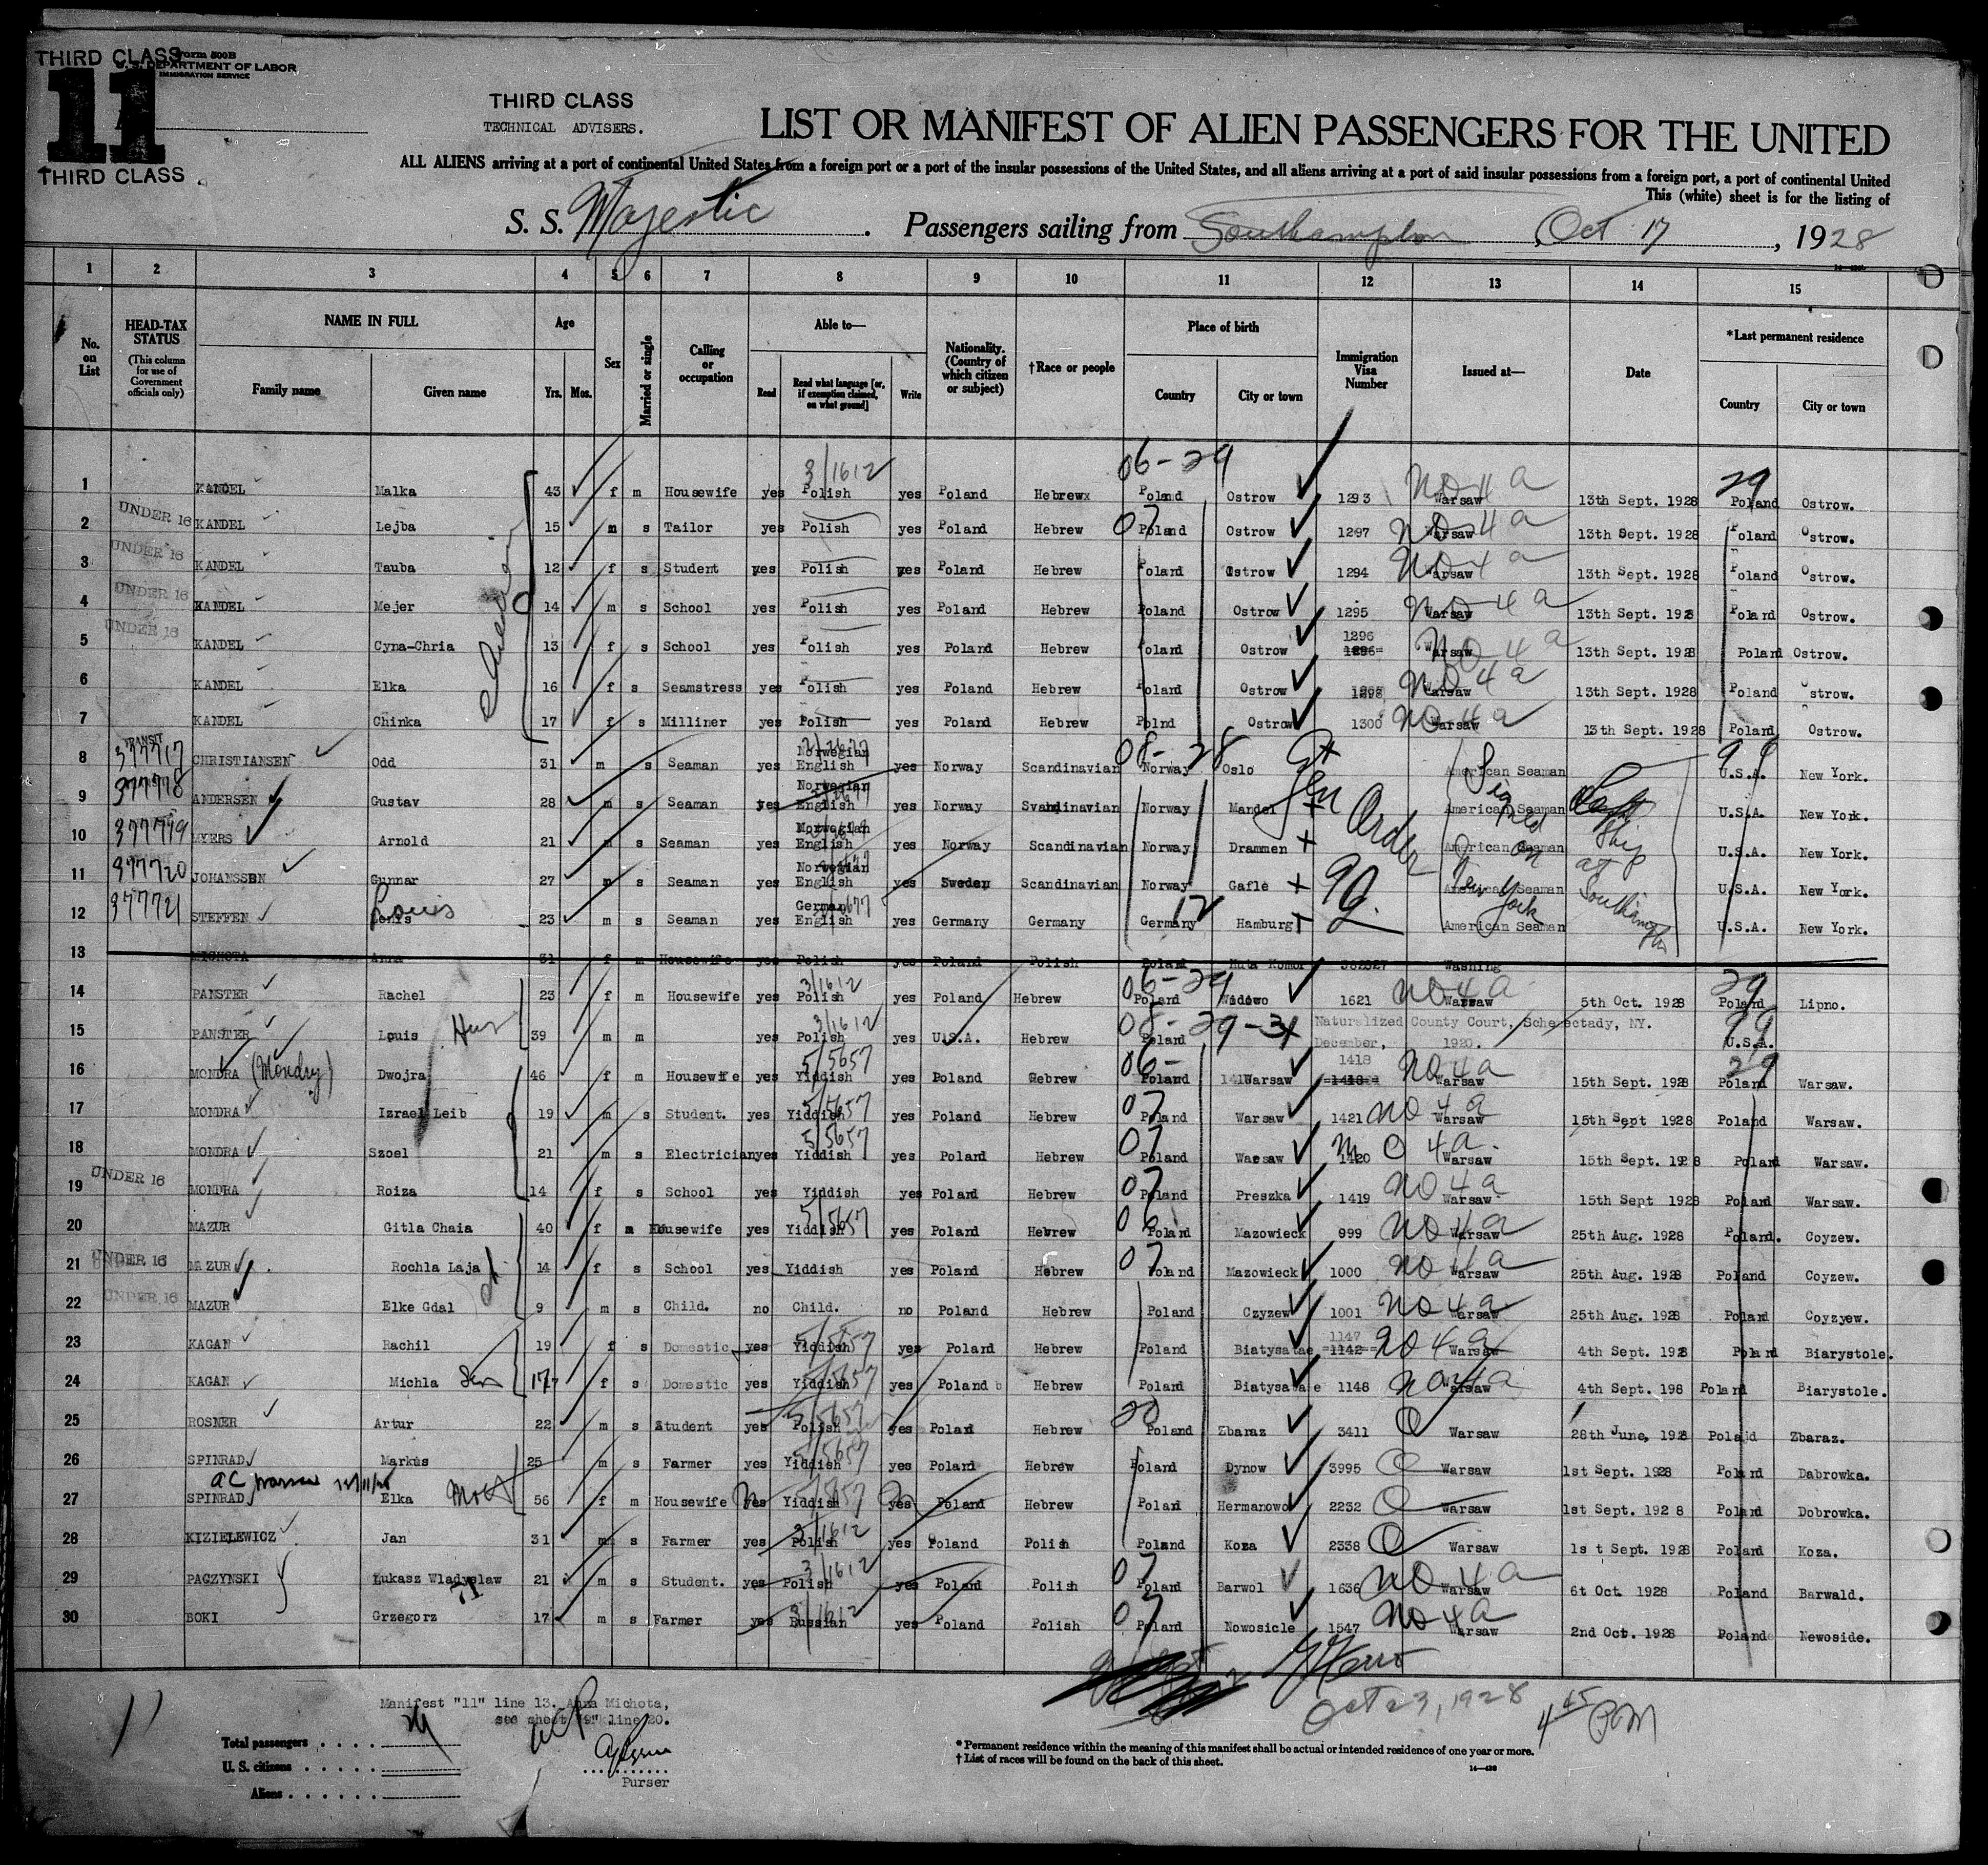 THIRD CLASS
Form 500B
U. S. DEPARTMENT OF LABOR
IMMIGRATION SERVICE
11
THIRD CLASS
THIRD CLASS
TECHNICAL ADVISERS.
LIST OR MANIFEST OF ALIEN PASSENGERS FOR THE UNITED
ALL ALIENS arriving at a port of continental United States from a foreign port or a port of the insular possessions of the United States, and all aliens arriving at a port of said insular possessions from a foreign port, a port of continental United
This (white) sheet is for the listing of
S. S. Majestic . Passengers sailing from Southampton , Oct 17 , 1928
1 2 3 4 5 6 7 8 9 10 11 12 13 14 15
No. on List
HEAD-TAX STATUS (This column for use of Government officials only)
NAME IN FULL Family name Given name
Age Yrs. Mos.
Sex
Married or single
Calling or occupation
Able to— Read Read what language [or, if exemption claimed, on what ground] Write
Nationality. (Country of which citizen or subject)
†Race or people
Place of birth Country City or town
Immigration Visa Number
Issued at—
Date
*Last permanent residence Country City or town
3/1612 06-29 29
1 KANDEL Malka 43 f m Housewife yes Polish yes Poland Hebrewx Poland Ostrow 1293 Warsaw NO 4 a 13th Sept. 1928 Poland Ostrow.
2 UNDER 16 KANDEL Lejba 15 m s Tailor yes Polish yes Poland Hebrew 07 Poland Ostrow 1297 Warsaw NO 4 a 13th Sept. 1928 Poland Ostrow.
3 UNDER 16 KANDEL Tauba 12 f s Student yes Polish yes Poland Hebrew Poland Ostrow 1294 Warsaw NO 4 a 13th Sept. 1928 Poland Ostrow.
4 UNDER 16 KANDEL Mejer 14 m s School yes Polish yes Poland Hebrew Poland Ostrow 1295 Warsaw NO 4 a 13th Sept. 1928 Poland Ostrow.
5 UNDER 16 KANDEL Cyna-Chria 13 f s School yes Polish yes Poland Hebrew Poland Ostrow 1296 Warsaw NO 4 a 13th Sept. 1928 Poland Ostrow.
6 KANDEL Elka 16 f s Seamstress yes Polish yes Poland Hebrew Poland Ostrow Warsaw NO 4 a 13th Sept. 1928 Poland Ostrow.
7 KANDEL Chinka 17 f s Milliner yes Polish yes Poland Hebrew Polnd Ostrow 1300 Warsaw NO 4 a 13th Sept. 1928 Poland Ostrow.
8 TRANSIT 377717 CHRISTIANSEN Odd 31 m s Seaman yes Norwegian English yes Norway Scandinavian 08-28 Norway Oslo American Seaman 99 U.S.A. New York.
9 377718 ANDERSEN Gustav 28 m s Seaman yes Norwegian English yes Norway Svandinavian Norway Mandel American Seaman U.S.A. New York.
10 377719 MYERS Arnold 21 m s Seaman yes Norwegian English yes Norway Scandinavian Norway Drammen American Seaman U.S.A. New York.
11 377720 JOHANSSEN Gunnar 27 m s Seaman yes Norwegian English yes Sweden Scandinavian Norway Gafle American Seaman U.S.A. New York.
12 377721 STEFFEN Louis 23 m s Seaman yes German English yes Germany Germany 12 Germany Hamburg American Seaman U.S.A. New York.
Gen Order 99.
Signed on New York
Left Ship at Southampton
13 MICHOTA Anna 31 f m Housewife yes Polish yes Poland Polish Poland Huta Komor 382827 Washing
14 PANSTER Rachel 23 f m Housewife yes 3/1612 Polish yes Poland Hebrew 06-29 Poland Widowo 1621 Warsaw NO 4 a 5th Oct. 1928 29 Poland Lipno.
15 PANSTER Louis Hus 39 m m yes 3/1612 Polish yes U.S.A. Hebrew 08-29-3x Poland Naturalized County Court, Schenectady, NY. December, 1920. 99 U.S.A.
16 MONDRA (Mondry) Dwojra 46 f m Housewife yes 5/5657 Yiddish yes Poland Hebrew 06- Poland Warsaw 1418 Warsaw NO 4 a 15th Sept. 1928 29 Poland Warsaw.
17 MONDRA Izrael Leib 19 m s Student. yes 5/5657 Yiddish yes Poland Hebrew 07 Poland Warsaw 1421 Warsaw NO 4 a 15th Sept 1928 Poland Warsaw.
18 MONDRA Szoel 21 m s Electrician yes 5/5657 Yiddish yes Poland Hebrew 07 Poland Warsaw 1420 Warsaw NO 4 a 15th Sept. 1928 Poland Warsaw.
19 UNDER 16 MONDRA Roiza 14 f s School yes Yiddish yes Poland Hebrew 07 Poland Preszka 1419 Warsaw NO 4 a 15th Sept 1928 Poland Warsaw.
20 MAZUR Gitla Chaia 40 f m Housewife yes 5/5657 Yiddish yes Poland Hebrew 06 Poland Mazowieck 999 Warsaw NO 4 a 25th Aug. 1928 Poland. Coyzew.
21 UNDER 16 MAZUR Rochla Laja 14 f s School yes Yiddish yes Poland Hebrew 07 Poland Mazowieck 1000 Warsaw NO 4 a 25th Aug. 1928 Poland Coyzew.
22 UNDER 16 MAZUR Elke Gdal 9 m s Child. no Child. no Poland Hebrew Poland Czyzew 1001 Warsaw NO 4 a 25th Aug. 1928 Poland Coyzyew.
23 KAGAN Rachil 19 f s Domestic yes 5/5657 Yiddish yes Poland Hebrew Poland Biatysatae 1147 1142 Warsaw NO 4 a 4th Sept. 1928 Poland Biarystole.
24 KAGAN Michla 17 f s Domestic yes 5/5657 Yiddish yes Poland Hebrew Poland Biatysatae 1148 Warsaw NO 4 a 4th Sept. 198 Poland Biarystole.
25 ROSNER Artur 22 m s Student yes 5/5657 Polish yes Poland Hebrew 20 Poland Zbaraz 3411 Q Warsaw 28th June, 1928 Polajd Zbaraz.
26 SPINRAD Markus 25 m s Farmer yes 5/5657 Yiddish yes Poland Hebrew Poland Dynow 3995 Q Warsaw 1st Sept. 1928 Poland Dabrowka.
27 SPINRAD Elka 56 f m Housewife yes 5/5657 Yiddish yes Poland Hebrew Poland Hermanowo 2252 Q Warsaw 1st Sept. 1928 Poland Dobrowka.
28 KIZIELEWICZ Jan 31 m s Farmer yes 3/1612 Polish yes Poland Polish Poland Koza 2338 Q Warsaw 1st Sept. 1928 Poland Koza.
29 PACZYNSKI Lukasz Wladyslaw 21 m s Student. yes 3/1612 Polish yes Poland Polish 07 Poland Barwol 1636 Warsaw NO 4 a 6t Oct. 1928 Poland Barwald.
30 BOKI Grzegorz 17 m s Farmer yes 3/1612 Russian yes Poland Polish 07 Poland Nowosicle 1547 Warsaw NO 4 a 2nd Oct. 1928 Poland Newoside.
Oct 23, 1928 4 45 PM
Manifest "11" line 13. Anna Michota,
see sheet "9" line 20.
11
Total passengers . . . . 29
U. S. citizens . . . . .
Aliens . . . . . .
Purser
* Permanent residence within the meaning of this manifest shall be actual or intended residence of one year or more.
† List of races will be found on the back of this sheet.
14—430